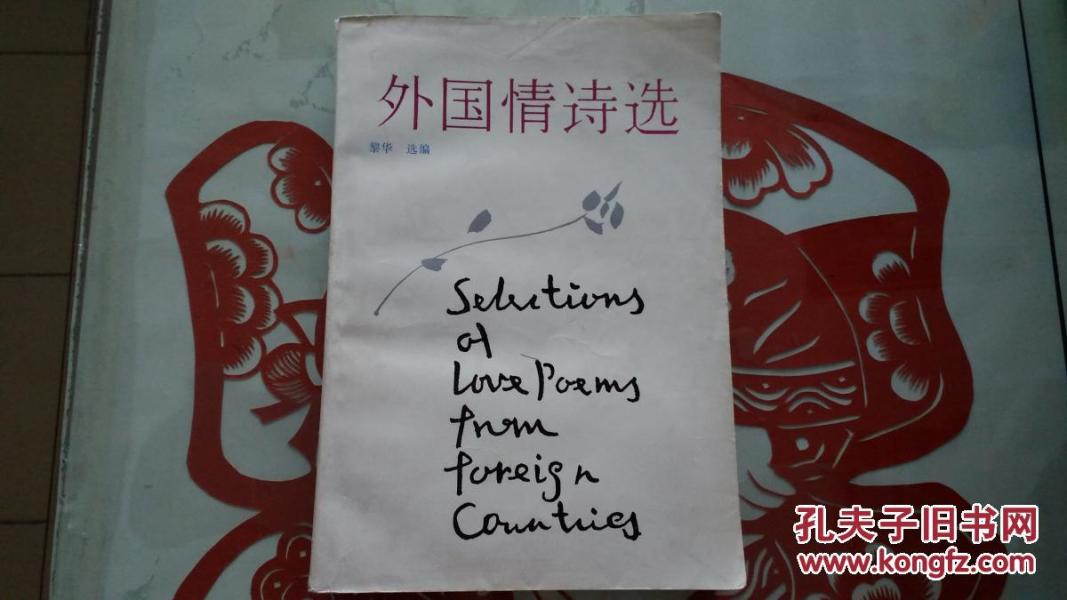 外国情诗选
黎华 选编
Selections
of
Love Poems
from
foreign
Countries
孔夫子旧书网
www.kongfz.com